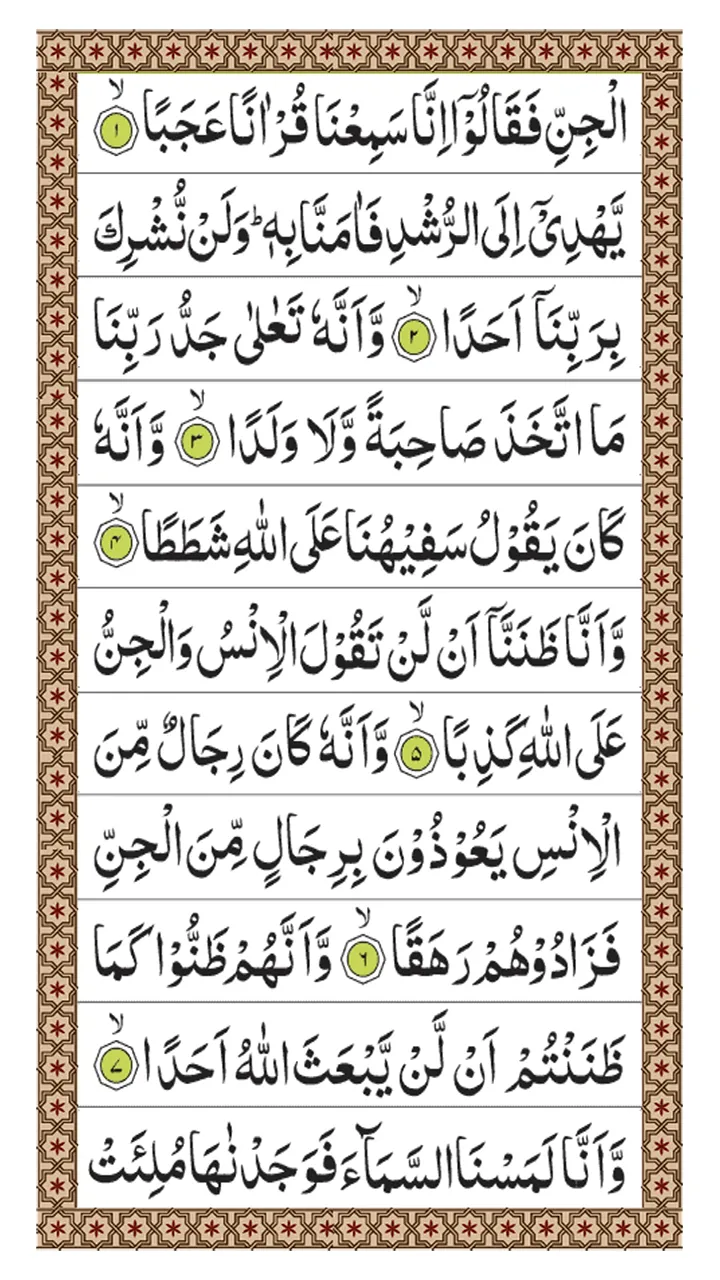 الْجِنِّ فَقَالُوْۤا اِنَّا سَمِعْنَا قُرْاٰنًا عَجَبًا ۙ﴿۱﴾
يَّهْدِیْۤ اِلَى الرُّشْدِ فَاٰمَنَّا بِهٖ ؕ وَلَنْ نُّشْرِكَ
بِرَبِّنَاۤ اَحَدًا ۙ﴿۲﴾ وَّاَنَّهٗ تَعٰلٰى جَدُّ رَبِّنَا
مَا اتَّخَذَ صَاحِبَةً وَّلَا وَلَدًا ۙ﴿۳﴾ وَّاَنَّهٗ
كَانَ يَقُوْلُ سَفِيْهُنَا عَلَى اللّٰهِ شَطَطًا ۙ﴿۴﴾
وَّاَنَّا ظَنَنَّاۤ اَنْ لَّنْ تَقُوْلَ الْاِنْسُ وَالْجِنُّ
عَلَى اللّٰهِ كَذِبًا ۙ﴿۵﴾ وَّاَنَّهٗ كَانَ رِجَالٌ مِّنَ
الْاِنْسِ يَعُوْذُوْنَ بِرِجَالٍ مِّنَ الْجِنِّ
فَزَادُوْهُمْ رَهَقًا ۙ﴿۶﴾ وَّاَنَّهُمْ ظَنُّوْا كَمَا
ظَنَنْتُمْ اَنْ لَّنْ يَّبْعَثَ اللّٰهُ اَحَدًا ۙ﴿۷﴾
وَّاَنَّا لَمَسْنَا السَّمَآءَ فَوَجَدْنٰهَا مُلِئَتْ